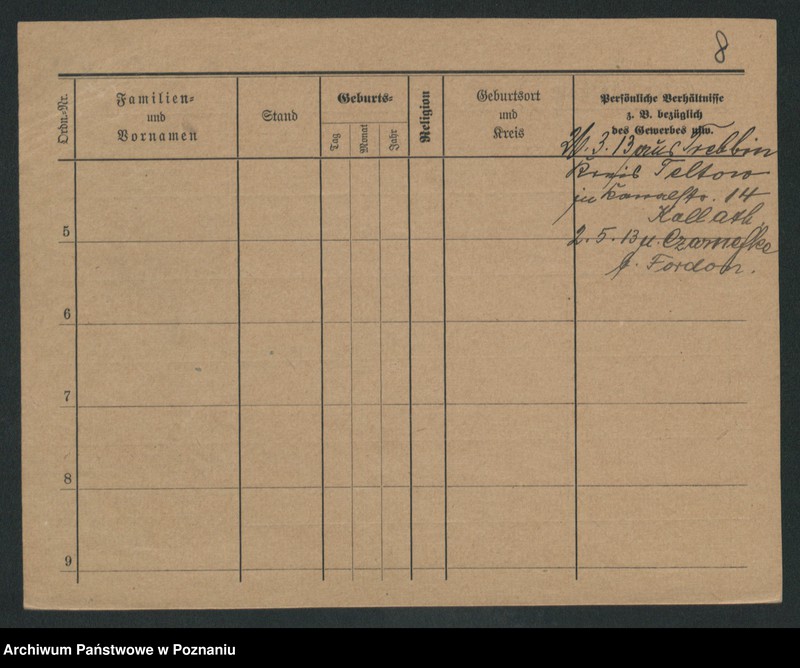 8
Ordn.-Nr.
Familien-
und
Vornamen
Stand
Geburts-
Tag
Monat
Jahr
Religion
Geburtsort
und
Kreis
Persönliche Verhältnisse
z. B. bezüglich
des Gewerbes usw.
3. 13 aus Trebbin
Kreis Teltow
in Kanalstr. 14
2. 5. 13 n.
b. Fordon.
5
6
7
8
9
Archiwum Państwowe w Poznaniu